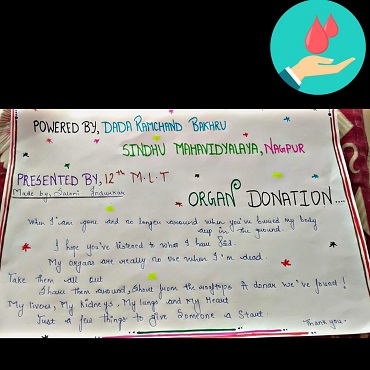 POWERED BY, DADA RAMCHAND BAKHRU
SINDHU MAHAVIDYALAYA, NAGPUR
PRESENTED BY, 12th M.L.T
Made by, Saloni
ORGAN DONATION....
When I'am gone and no longer around when you've buried my body
deep in the ground.
I hope you've listened to what I have Said.
My organs are really no use when I'm dead.
Take them all out
Share them around, Shout from the rooftops A donar we've found!
My livers, My kidneys, My lungs and My Heart
Just a few things to give Someone a Start.
Thank you.